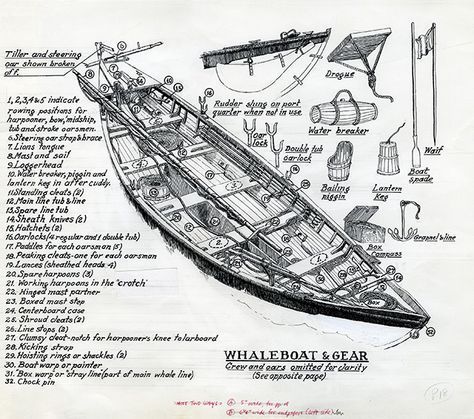 Tiller and steering
oar shown broken
off.
1, 2, 3, 4 & 5 indicate
rowing positions for
harpooner, bow, midship,
tub and stroke oarsmen.
6. Steering oar strap & brace
7. Lions tongue
8. Mast and sail
9. Loggerhead
10. Water breaker, piggin and
lantern keg in after cuddy.
11. Standing cleats (2)
12. Main line tub & line
13. Spare line tub
14. Sheath knives (2)
15. Hatchets (2)
16. Oarlocks (4 regular and 1 double tub)
17. Paddles for each oarsman (5)
18. Peaking cleats-one for each oarsman
19. Lances (sheathed heads-4)
20. Spare harpoons (3)
21. Working harpoons in the 'crotch'
22. Hinged mast partner
23. Boxed mast step
24. Centerboard case
25. Shroud cleats (2)
26. Line stops (2)
27. Clumsy cleat-notch for harpooner's knee to larboard
28. Kicking strap
29. Hoisting rings or shackles (2)
30. Boat warp or painter
31. 'Box warp or stray line (part of main whale line)
32. Chock pin
Rudder slung on port
quarter when not in use
Drogue
Oar
lock
Double tub
oarlock
Water breaker
Waif
Bailing
piggin
Lantern
Keg
Boat
spade
Box
Compass
Grapnel & line
Box
WHALEBOAT & GEAR
Crew and oars omitted for clarity
(See opposite page)
P18